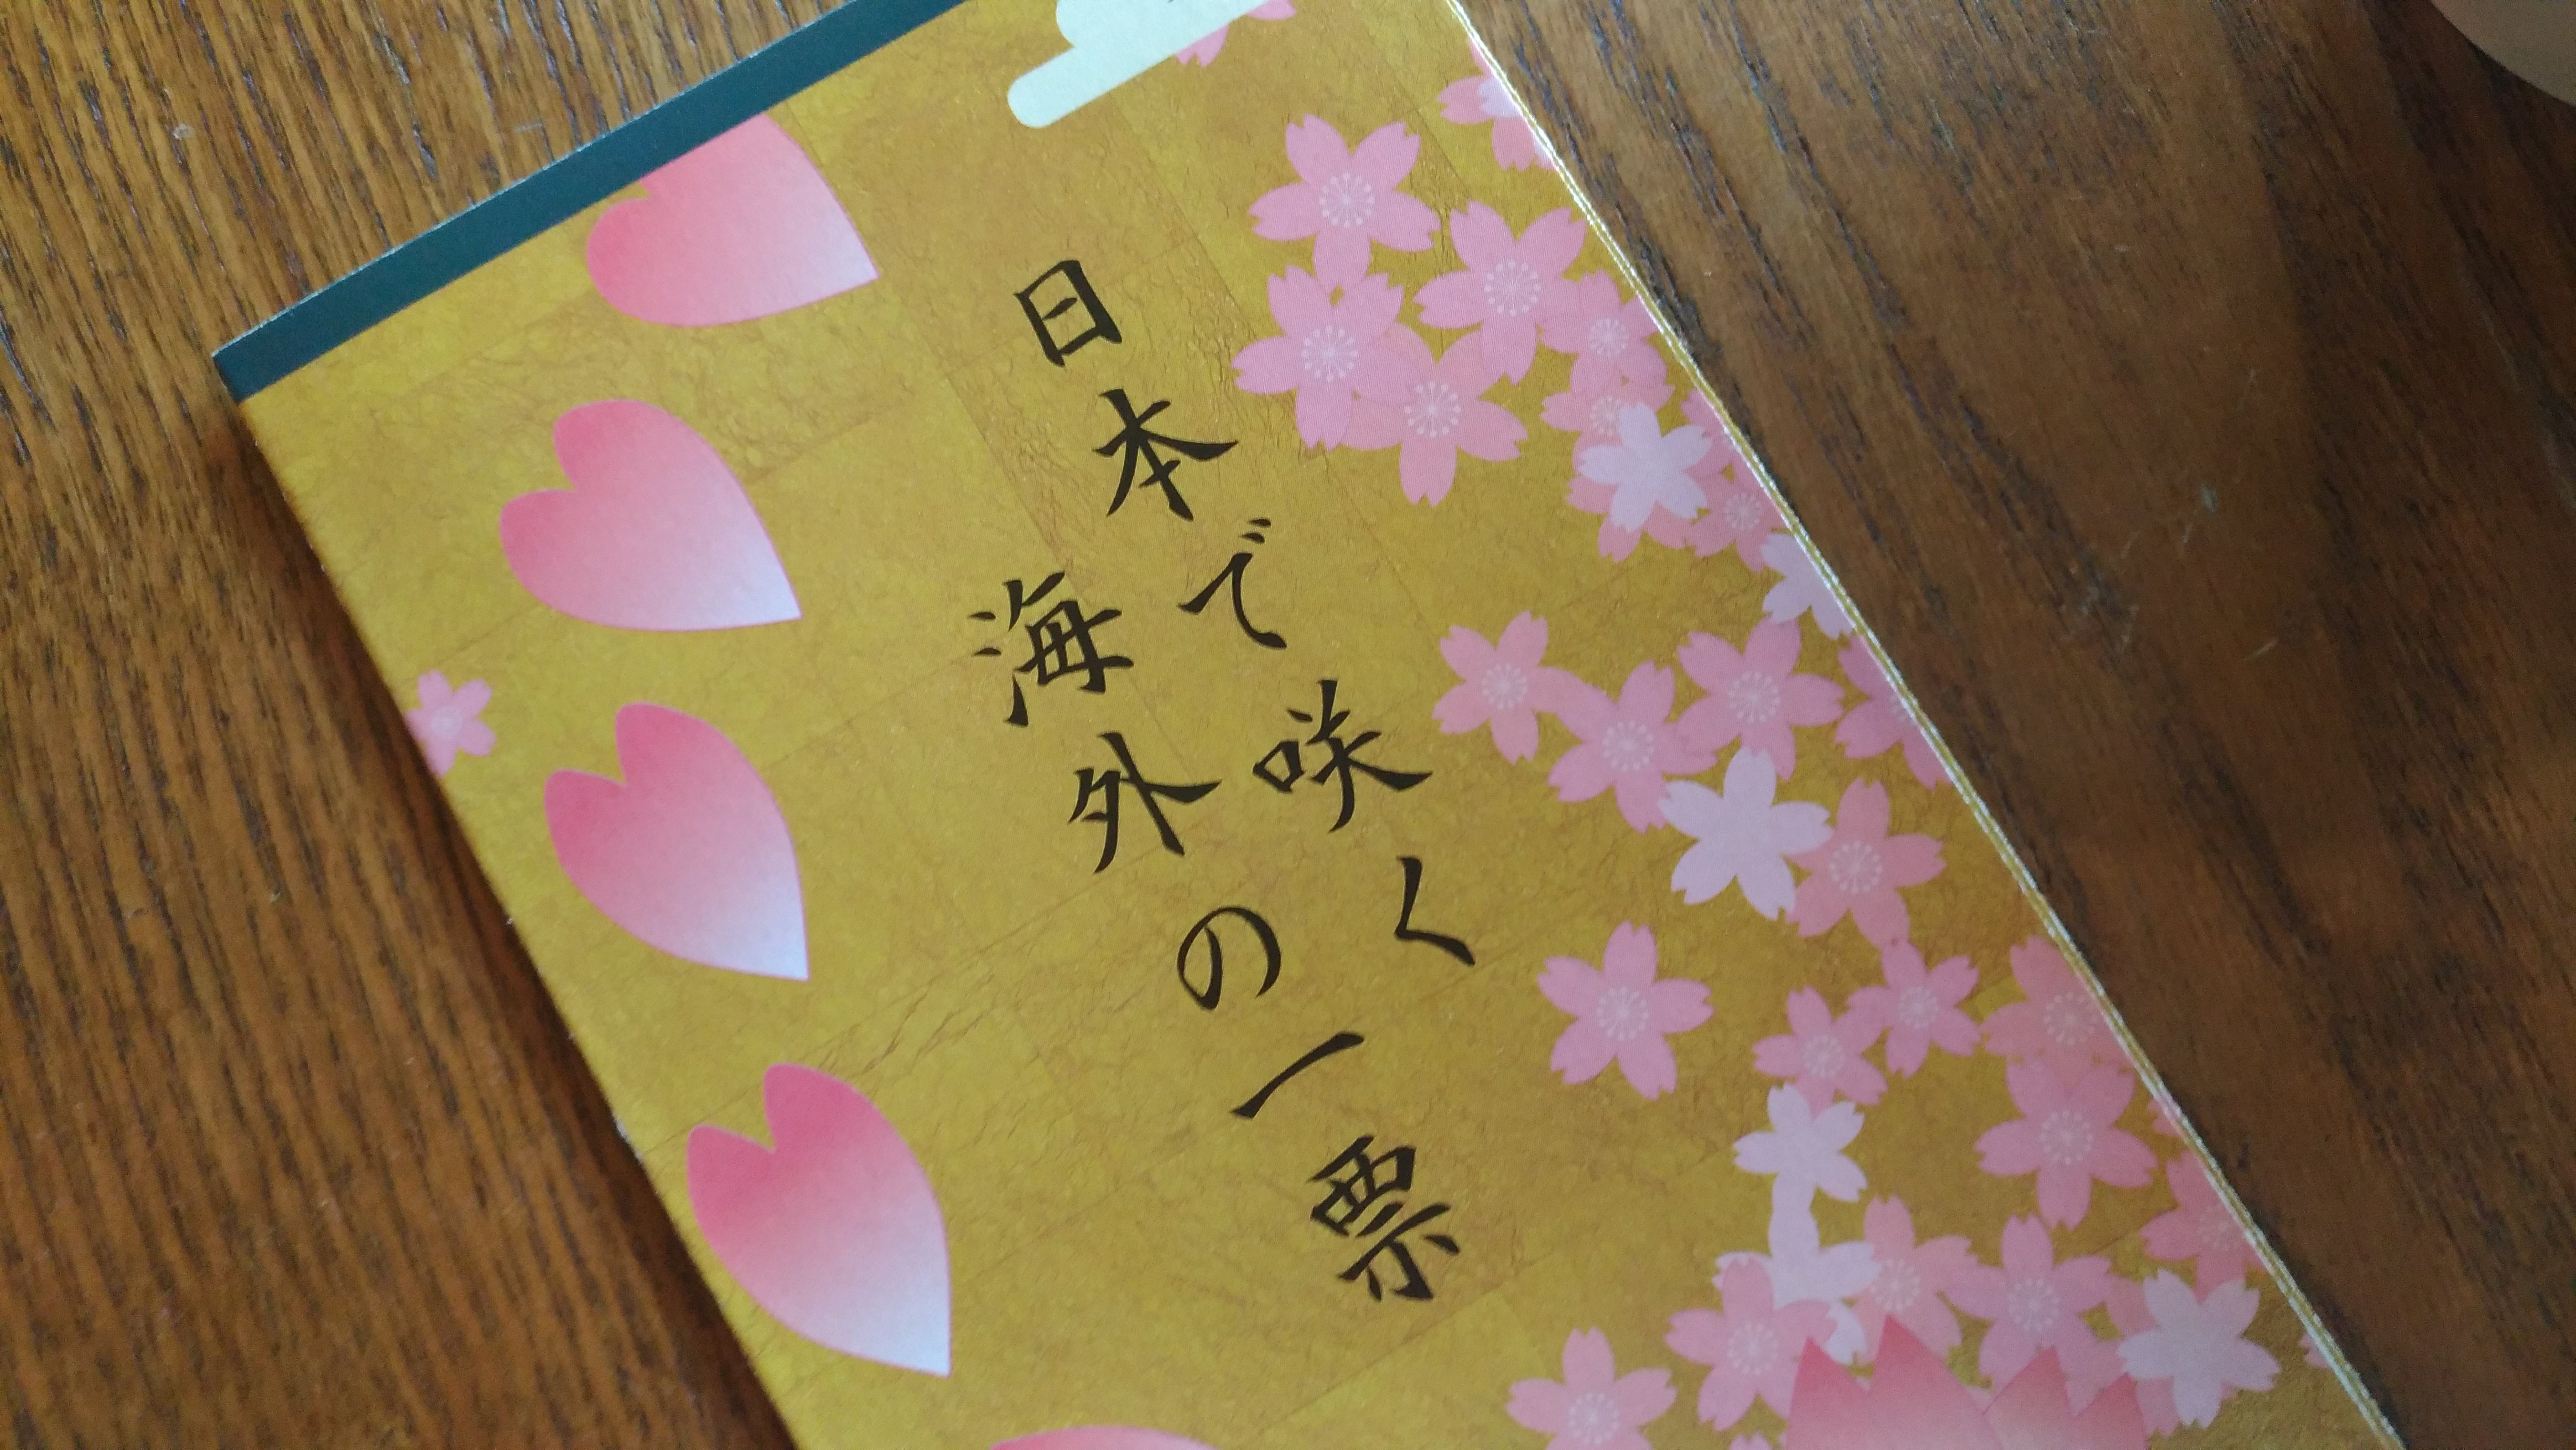 日本で咲く
海外の一票